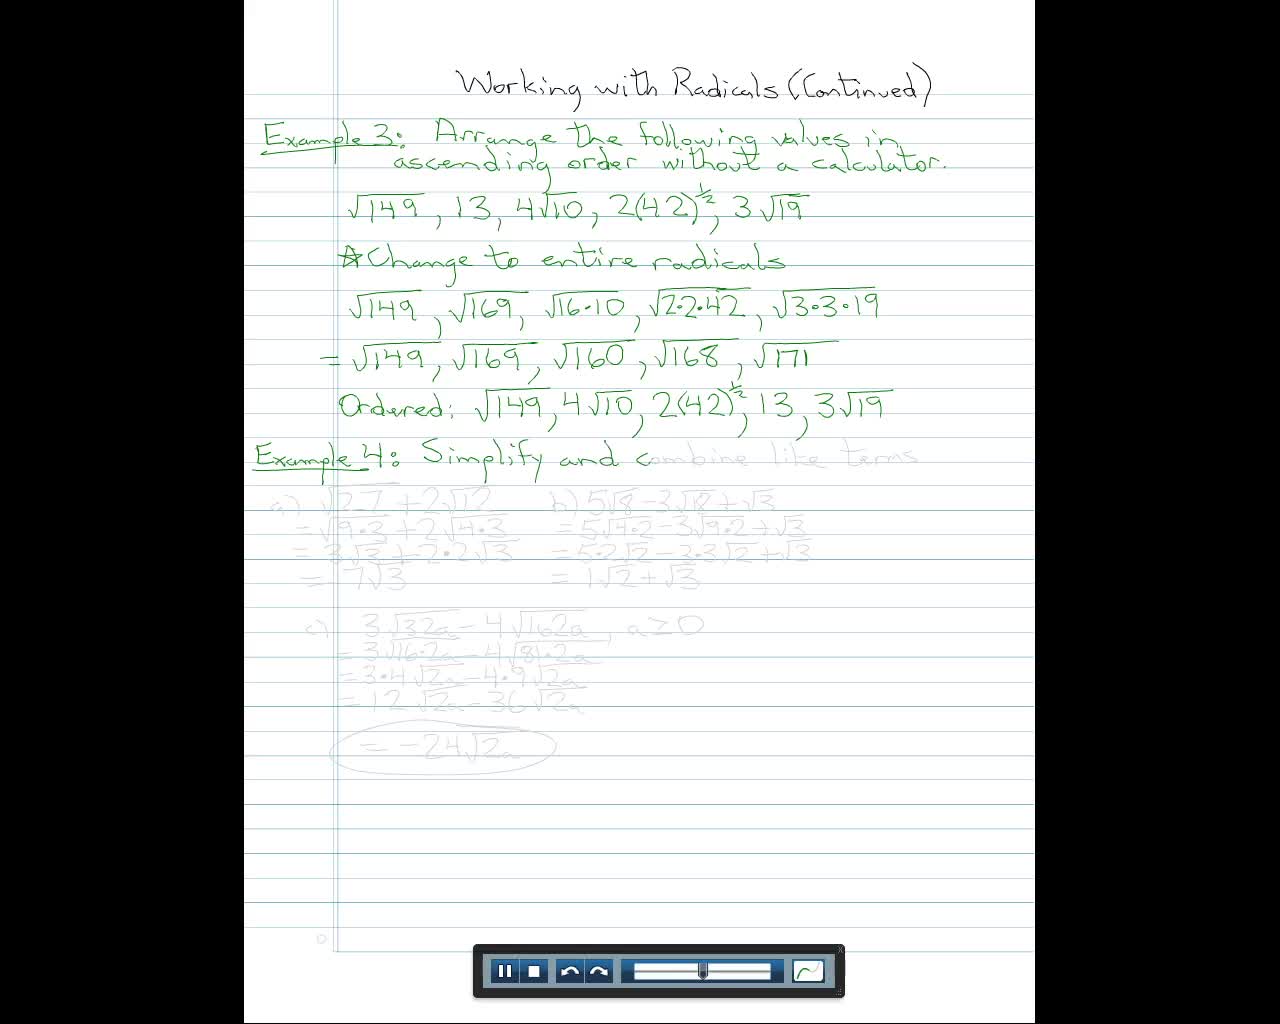 Working with Radicals (Continued)
Example 3: Arrange the following values in
ascending order without a calculator.
√149, 13, 4√10, 2(42)^½, 3√19
☆Change to entire radicals
√149, √169, √16·10, √2·2·42, √3·3·19
= √149, √169, √160, √168, √171
Ordered: √149, 4√10, 2(42)^½, 13, 3√19
Example 4: Simplify and combine like terms
a) √27 + 2√12
= √9·3 + 2√4·3
= 3√3 + 2·2√3
= 7√3
b) 5√8 - 3√18 + √3
= 5√4·2 - 3√9·2 + √3
= 5·2√2 - 3·3√2 + √3
= 1√2 + √3
c) 3√32a - 4√162a, a ≥ 0
= 3√16·2a - 4√81·2a
= 3·4√2a - 4·9√2a
= 12√2a - 36√2a
= -24√2a